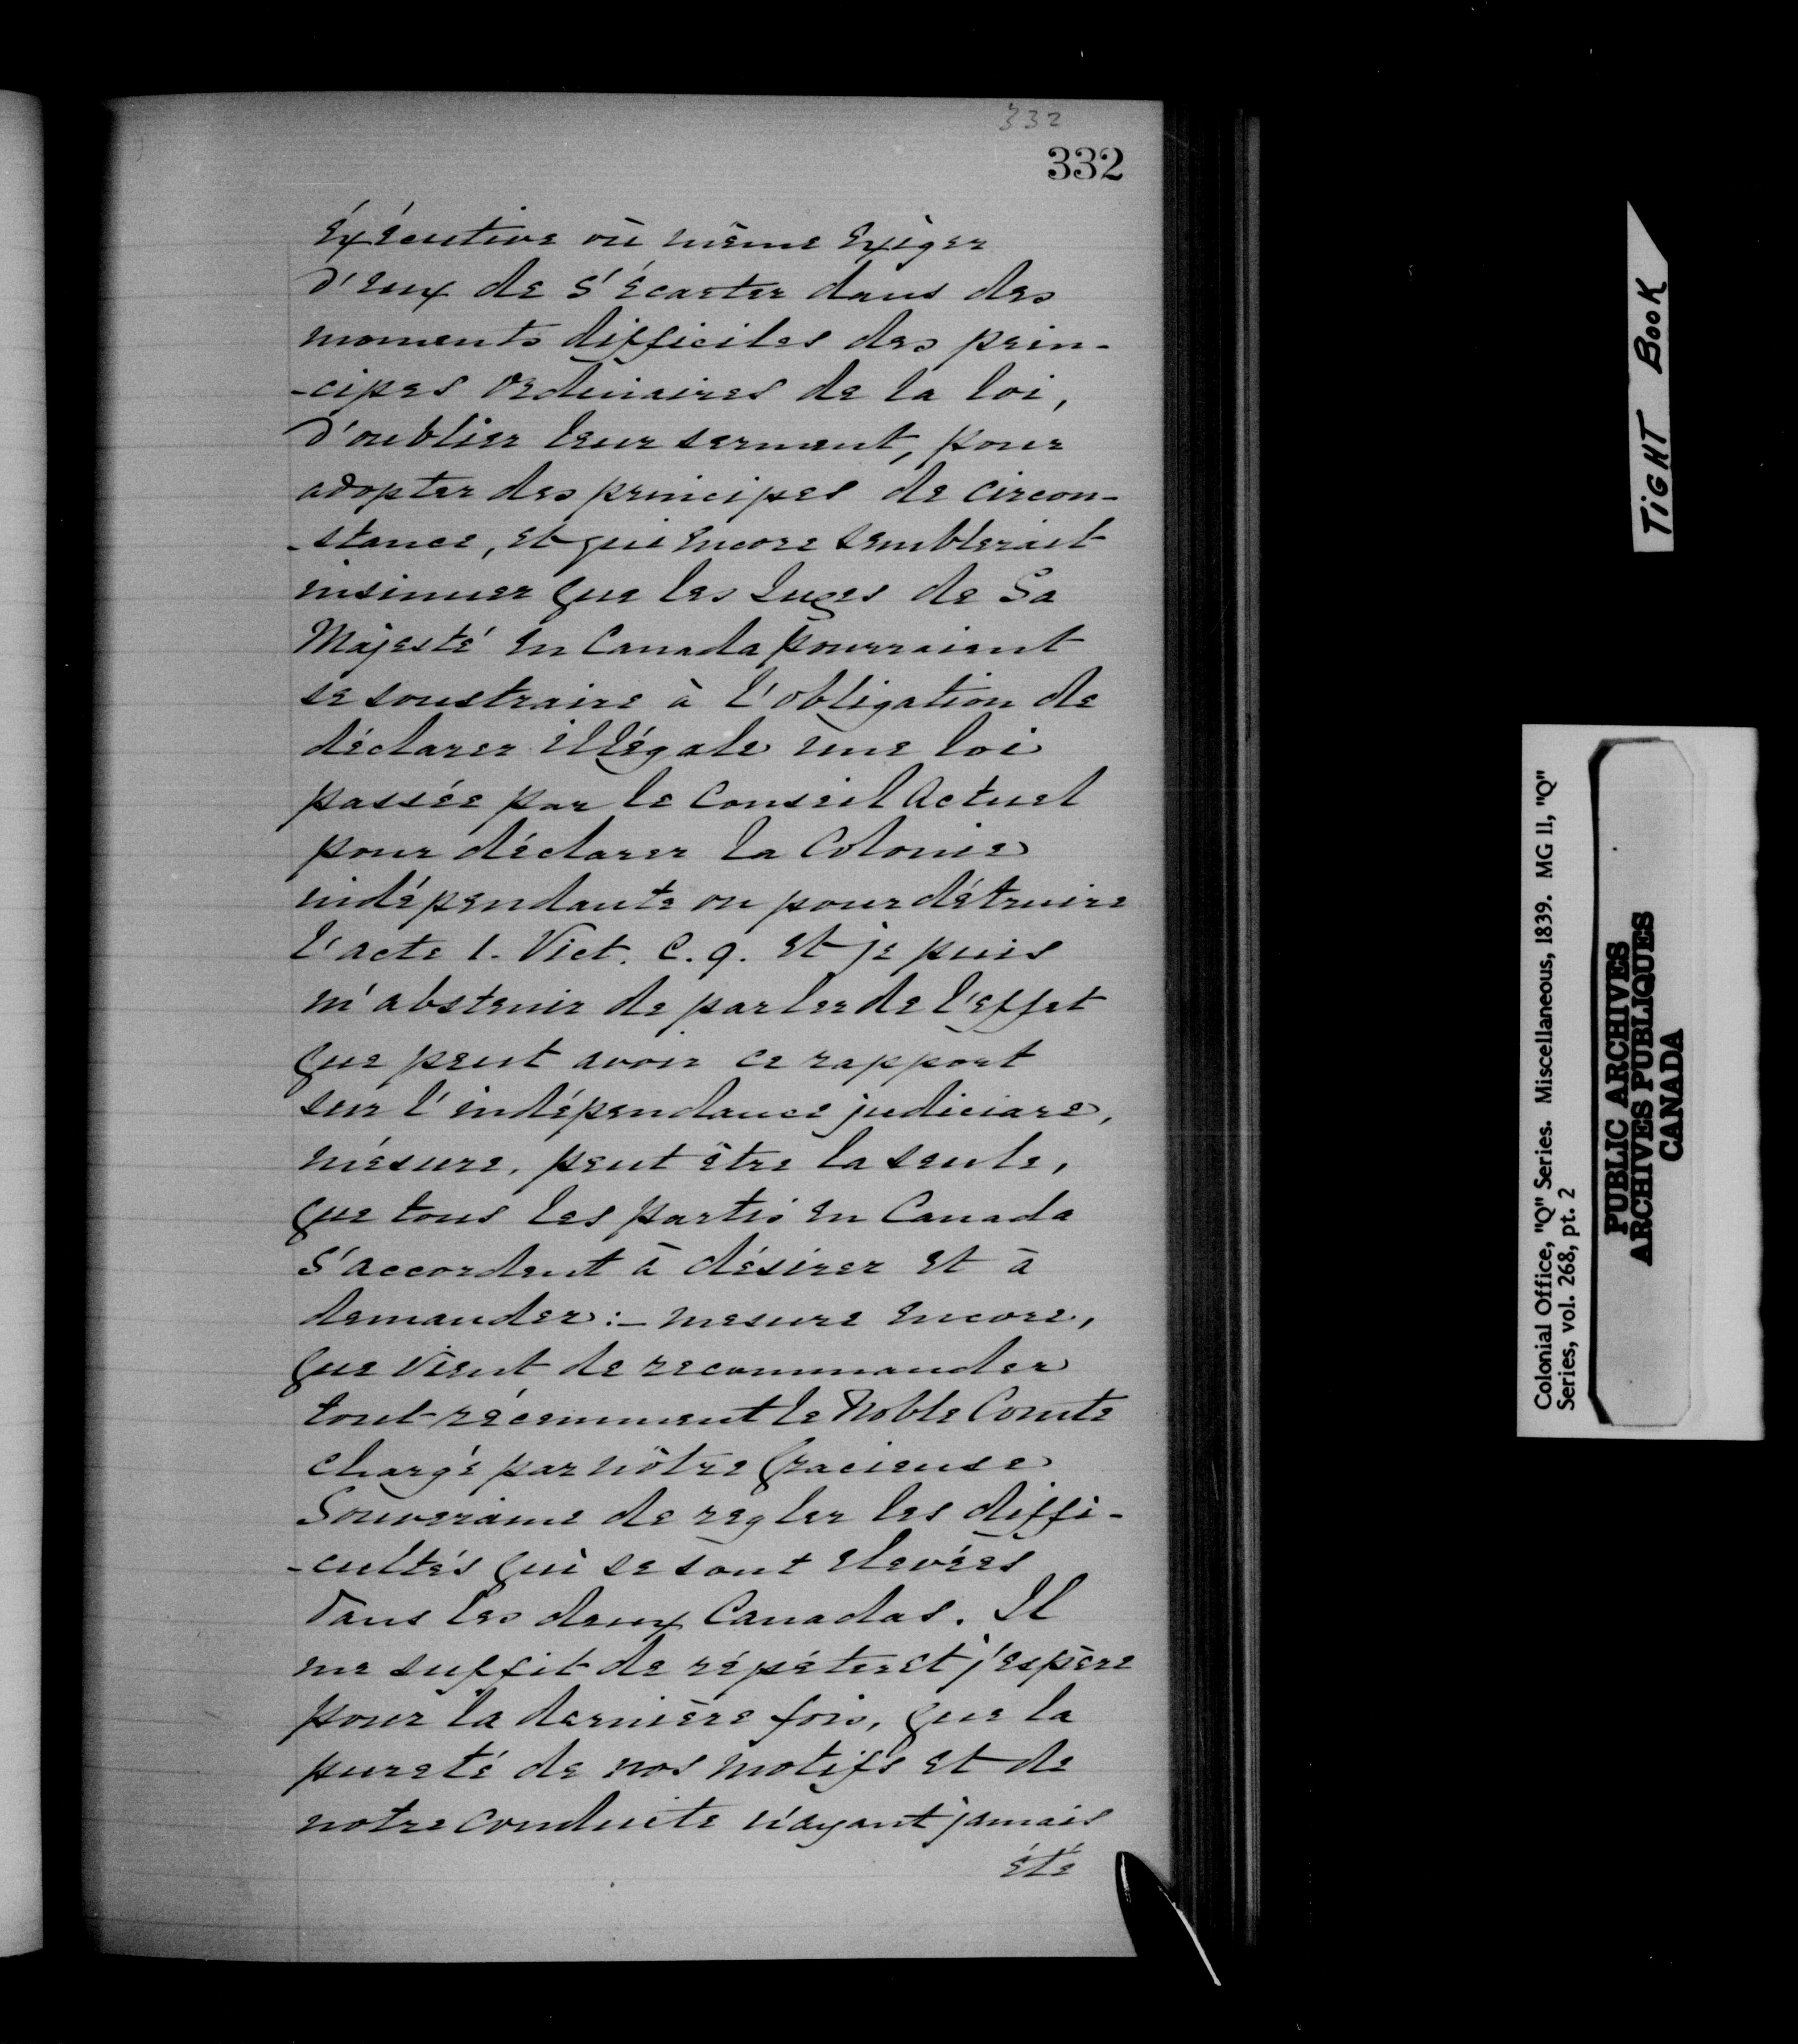 332
332
éxécutive où même exiger
d'eux de s'écarter dans des
moments difficiles des prin-
-cipes ordinaires de la loi,
d'oublier leur serment, pour
adopter des principes de circon-
-stance, et qui encore semblerait
insinuer que les Juges de Sa
Majesté en Canada pourraient
se soustraire à l'obligation de
déclarer illégale une loi
passée par le Conseil Actuel
pour déclarer la Colonie
indépendante ou pour détruire
l'acte 1. Vict. C. 9. et je puis
m'abstenir de parler de l'effet
que peut avoir ce rapport
sur l'indépendance judiciare,
mésure, peut être la seule,
que tous les partis en Canada
s'accordent à désirer et à
demander:- mesure encore,
que vient de recommander
tout récemment le Noble Comte
chargé par nôtre Gracieuse
Souveraine de regler les diffi-
-cultés qui se sont elevées
dans les deux Canadas. Il
me suffit de répéter et j'espère
pour la dernière fois, que la
pureté de nos motifs et de
notre conduite n'ayant jamais
été
TIGHT BOOK
Colonial Office, "Q" Series. Miscellaneous, 1839. MG 11, "Q"
Series, vol. 268, pt. 2
PUBLIC ARCHIVES
ARCHIVES PUBLIQUES
CANADA